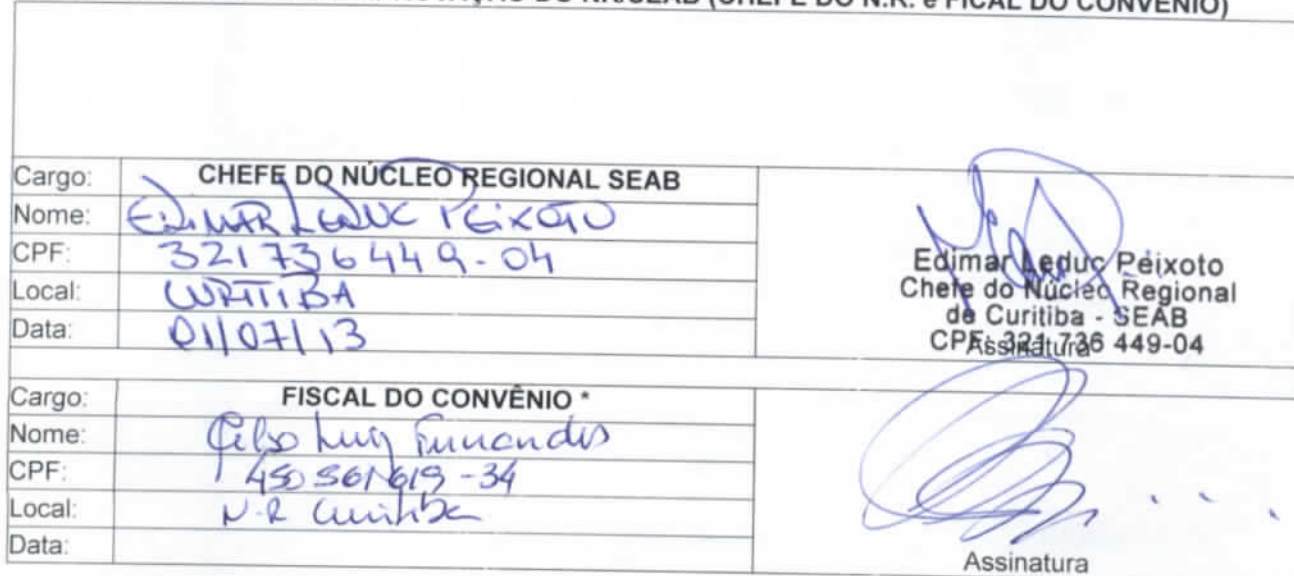 DO NR/SEAB (CHEFE DO N.R. e FICAL DO CONVÊNIO)
Cargo: CHEFE DO NÚCLEO REGIONAL SEAB
Nome: EDIMAR LEDUC PEIXOTO
CPF: 321736449-04
Local: CURITIBA
Data: 01/07/13
Edimar Leduc Peixoto
Chefe do Núcleo Regional
de Curitiba - SEAB
CPF: 321 736 449-04
Assinatura
Cargo: FISCAL DO CONVÊNIO *
Nome: Celso Luiz Fernandes
CPF: 450561619-34
Local: N.R Curitiba
Data:
Assinatura